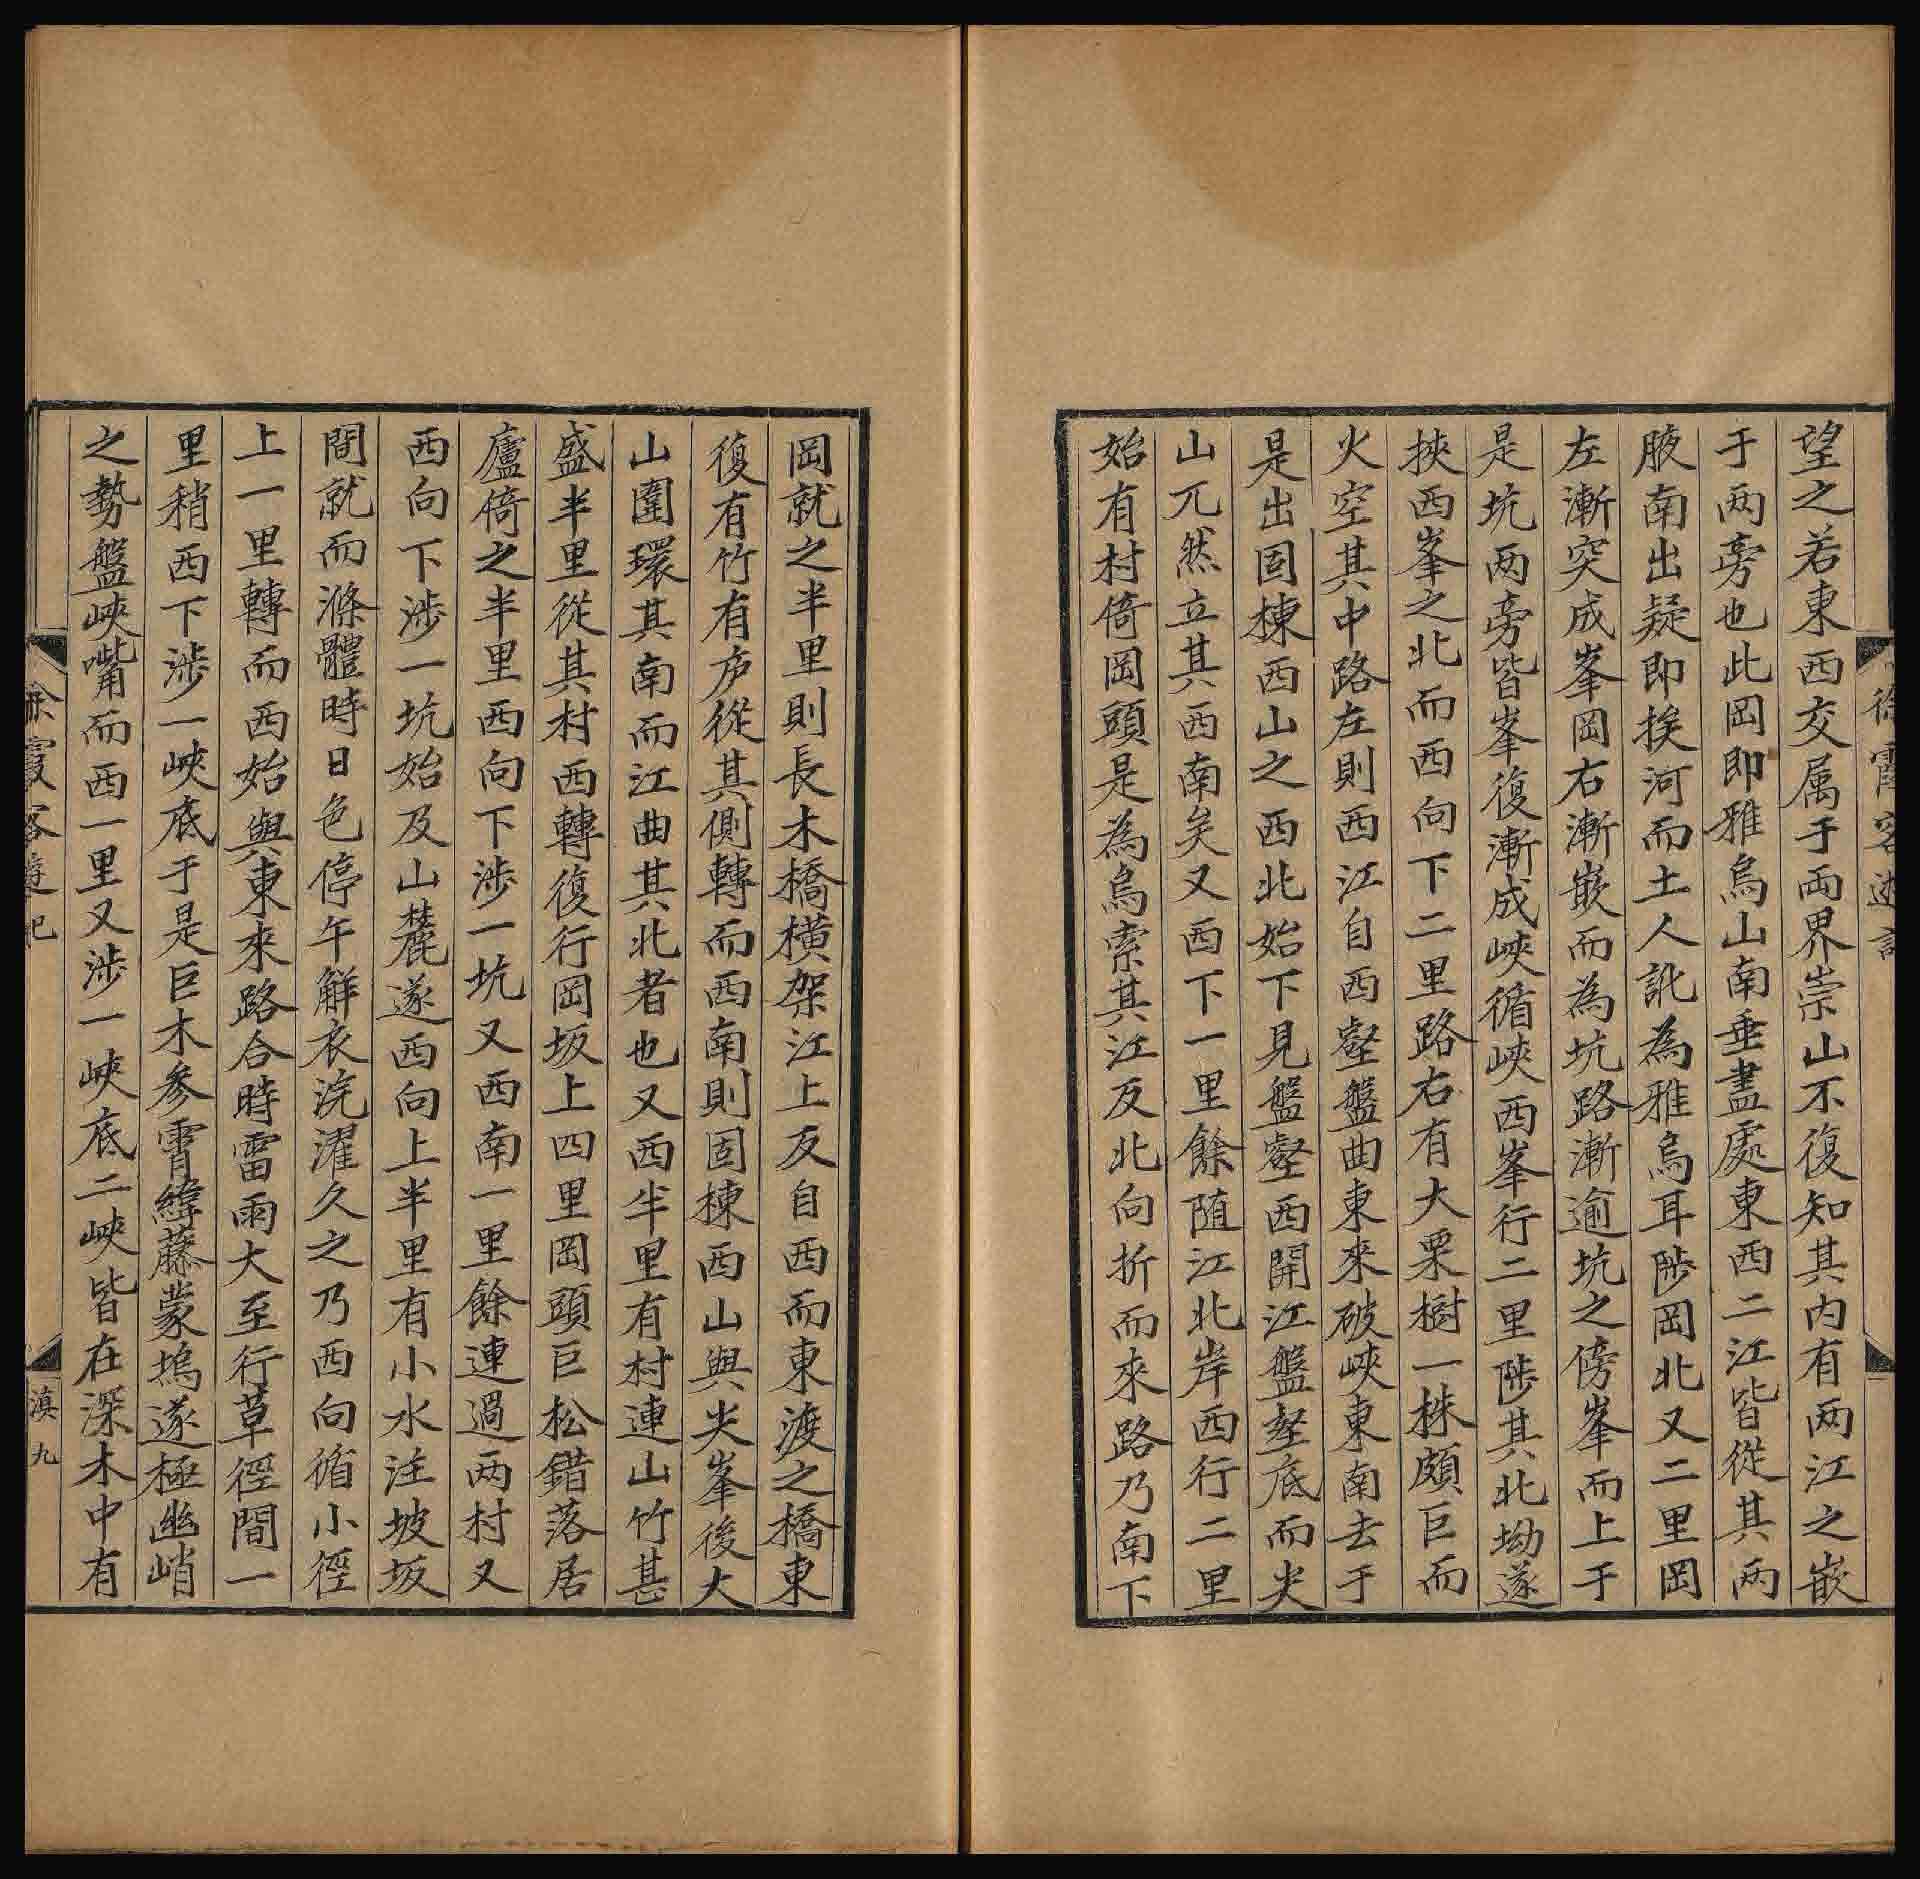 徐霞客遊記
望之若東西交属于两界崇山不復知其内有两江之嵌
于两旁也此岡即雅烏山南垂盡處東西二江皆從其两
腋南出疑即挨河而土人訛為雅烏耳陟岡北又二里岡
左漸突成峯岡右漸嵌而為坑路漸逾坑之傍峯而上于
是坑两旁皆峯復漸成峽循峽西峯行二里陟其北坳遂
挾西峯之北而西向下二里路右有大栗樹一株頗巨而
火空其中路左則西江自西壑盤曲東來破峽東南去于
是出固棟西山之西北始下見盤壑西開江盤壑底而尖
山兀然立其西南矣又西下一里餘随江北岸西行二里
始有村倚岡頭是為烏索其江反北向折而來路乃南下
岡就之半里則長木橋横架江上反自西而東渡之橋東
復有竹有庐從其側轉而西南則固棟西山與尖峯後大
山圍環其南而江曲其北者也又西半里有村連山竹甚
盛半里從其村西轉復行岡坂上四里岡頭巨松錯落居
廬倚之半里西向下涉一坑又西南一里餘連過两村又
西向下涉一坑始及山麓遂西向上半里有小水注坡坂
間就而滌體時日色停午解衣浣濯久之乃西向循小徑
上一里轉而西始與東來路合時雷雨大至行草徑間一
里稍西下涉一峽底于是巨木參霄緯藤蒙塢遂極幽峭
之勢盤峽嘴而西一里又涉一峽底二峽皆在深木中有
徐霞客遊記
滇九